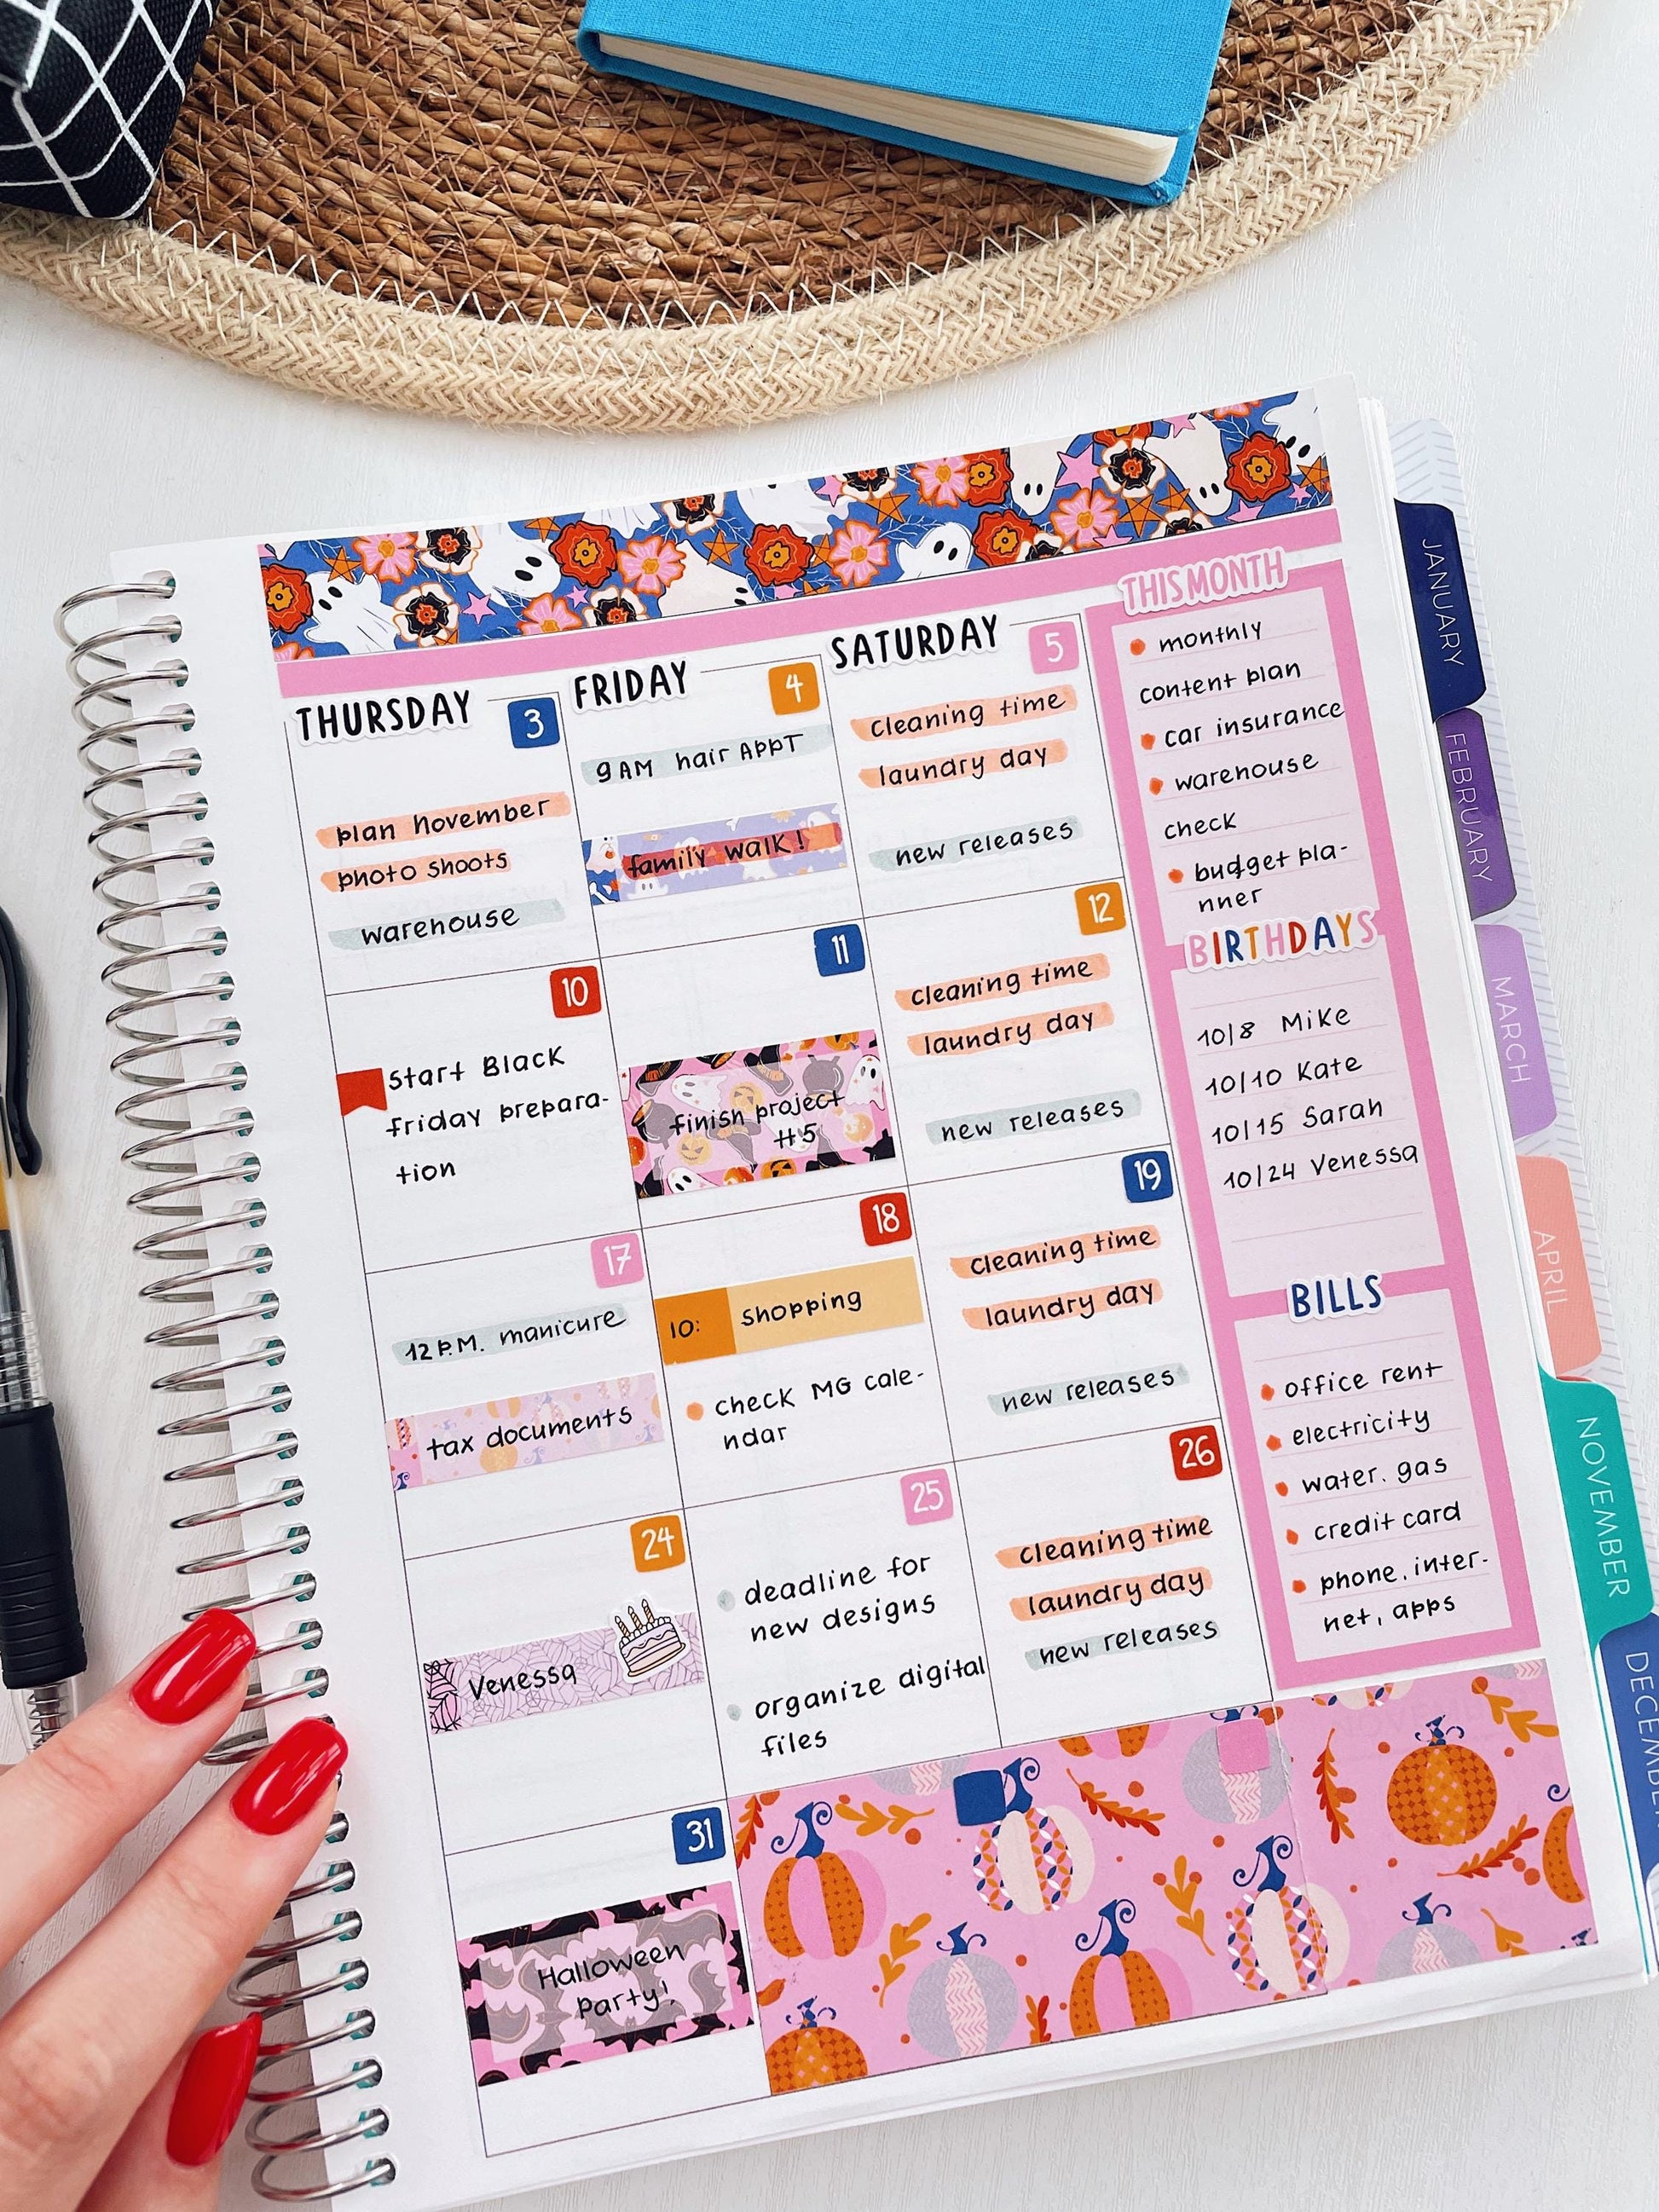 THURSDAY
3
plan november
photo shoots
warehouse
FRIDAY
4
9AM hair APPT
family walk!
SATURDAY
5
cleaning time
laundry day
new releases
10
start Black
friday prepara-
tion
11
finish project
#5
12
cleaning time
laundry day
new releases
17
12 P.M. manicure
tax documents
18
10: shopping
check MG cale-
ndar
19
cleaning time
laundry day
new releases
24
Venessa
25
deadline for
new designs
organize digital
files
26
cleaning time
laundry day
new releases
31
Halloween
party!
THIS MONTH
monthly
content plan
car insurance
warehouse
check
budget pla-
nner
BIRTHDAYS
10/8 Mike
10/10 Kate
10/15 Sarah
10/24 Venessa
BILLS
office rent
electricity
water. gas
credit card
phone. inter-
net, apps
JANUARY
FEBRUARY
MARCH
APRIL
NOVEMBER